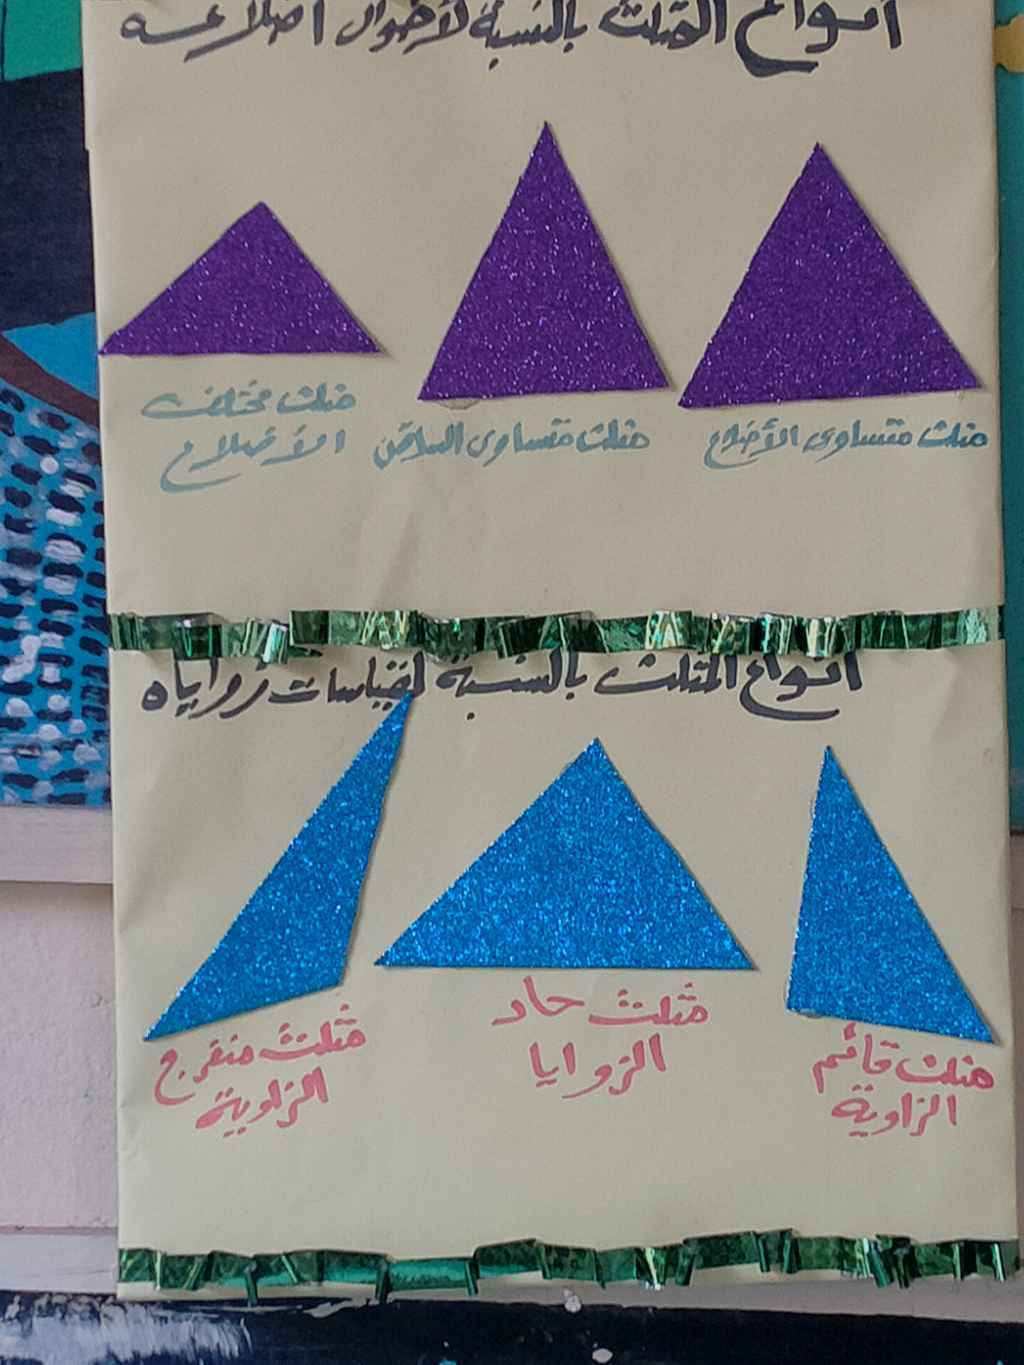 أنواع المثلث بالنسبة لأطوال اضلاعه
مثلث متساوى الأضلاع
مثلث متساوى الساقين
مثلث مختلف
الأضلاع
أنواع المثلث بالنسبة لقياسات زواياه
مثلث قائم
الزاوية
مثلث حاد
الزوايا
مثلث منفرج
الزاوية